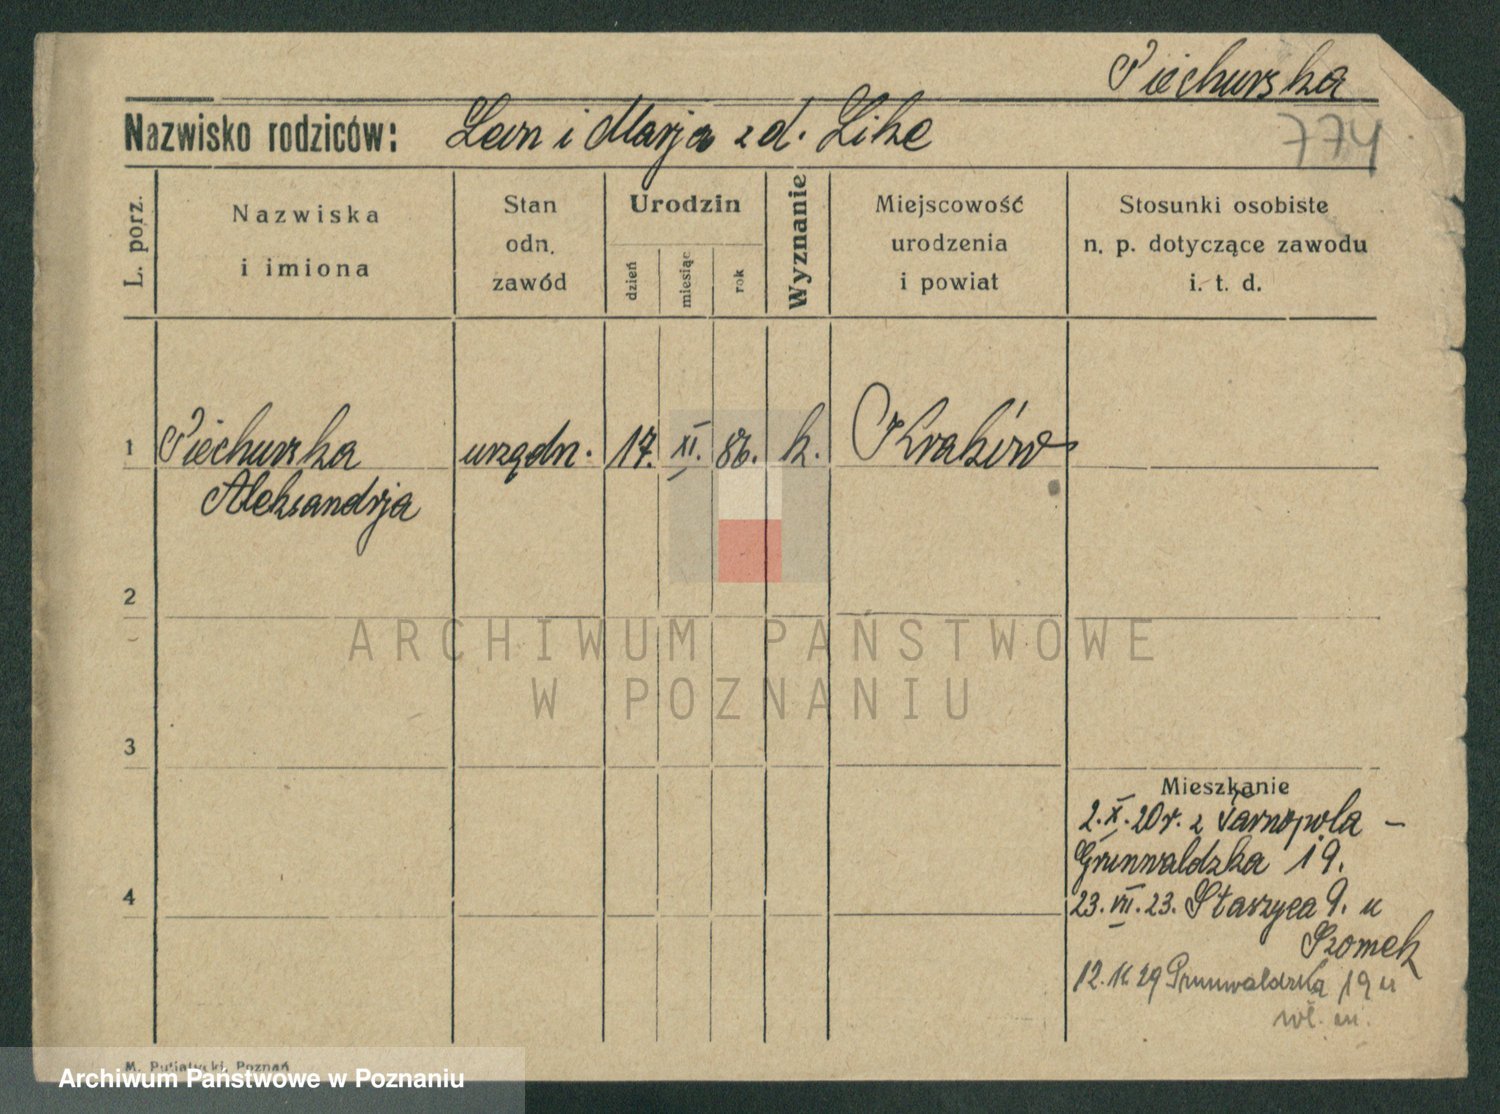 Piechurska
Nazwisko rodziców: Leon i Marja z d. Like
774
L. porz.
Nazwiska
i imiona
Stan
odn.
zawód
Urodzin
dzień
miesiąc
rok
Wyznanie
Miejscowość
urodzenia
i powiat
Stosunki osobiste
n. p. dotyczące zawodu
i. t. d.
1 Piechurska urzędn. 17. XI. 86. k. Kraków
Aleksandrja
2
ARCHIWUM PAŃSTWOWE
W POZNANIU
3
Mieszkanie
2.X.20r. z Tarnopola -
Grunwaldzka 19.
4
23.VII.23. Staszyca 9. u
Szomek
12. 29 Grunwaldzka 19 u
wł. m.
M. Putiatycki, Poznań
Archiwum Państwowe w Poznaniu